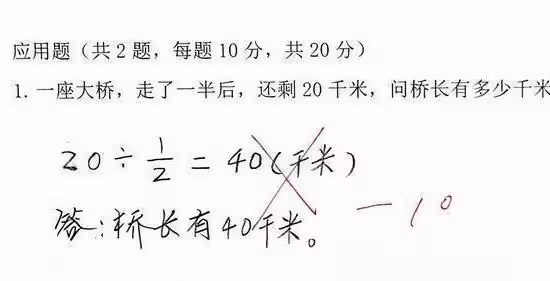 应用题（共2题，每题10分，共20分）
1. 一座大桥，走了一半后，还剩20千米，问桥长有多少千米
20÷1/2=40(千米)
答:桥长有40千米。
-10